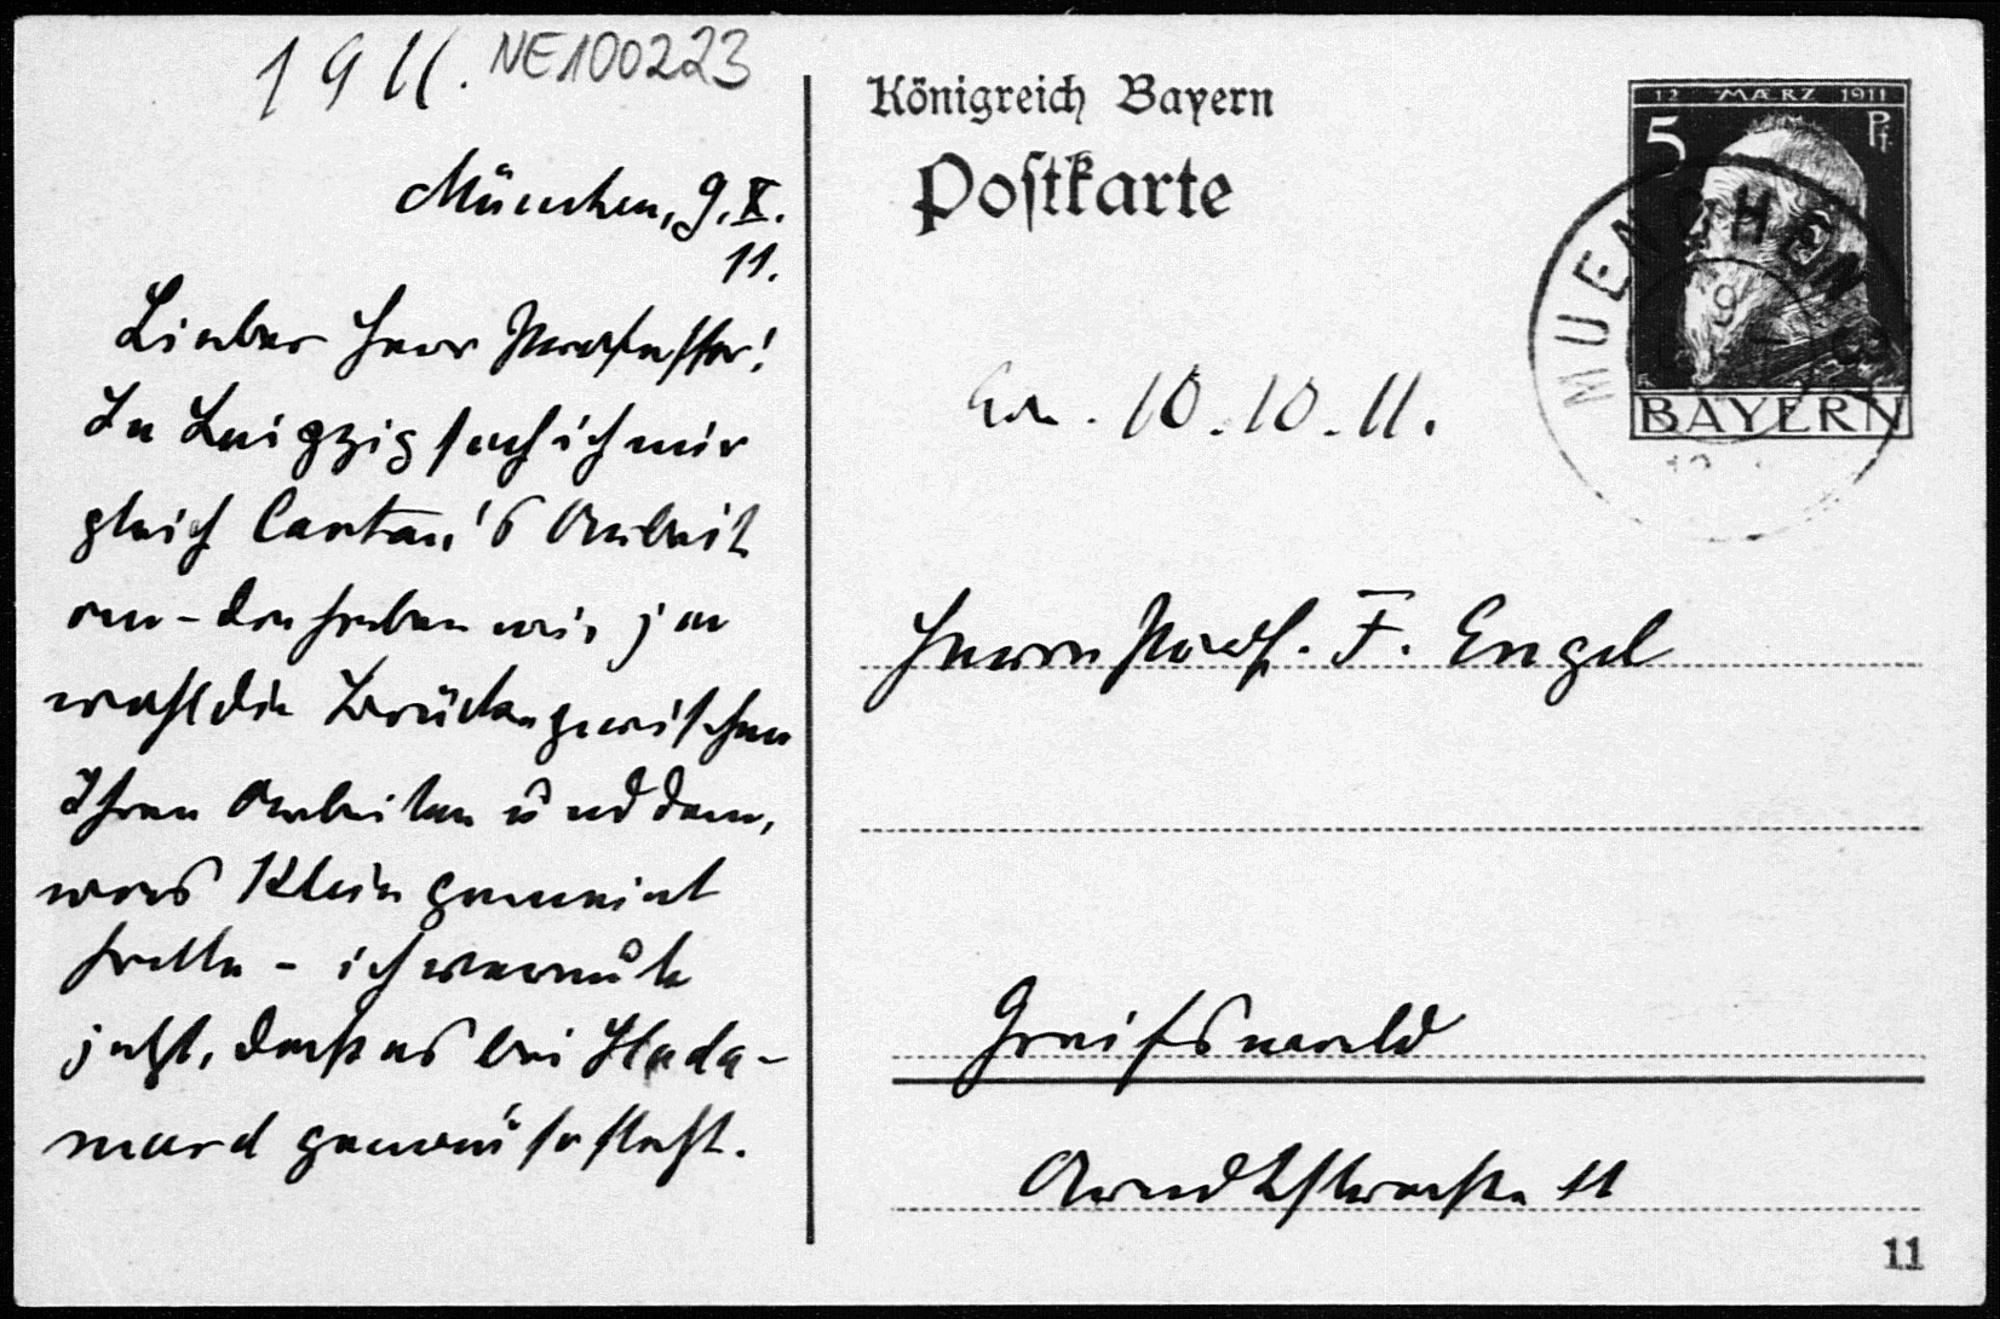 1911.
NE100223
München, 9. X.
11.
Lieber Herr Professor!
In Leipzig sah ich mir
gleich Cartan's Arbeit
an - da haben wir ja
wohl die Brücke zwischen
Ihren Arbeiten und dem,
was Klein gemeint
hatte - ich vermute
jetzt, dass es bei Hada-
mard genau so steht.
Königreich Bayern
Postkarte
12 MÆRZ 1911
5 Pf.
BAYERN
MUENCHEN
9
10.10.11.
Herrn Prof. F. Engel
Greifswald
Arndtstrasse 11
11